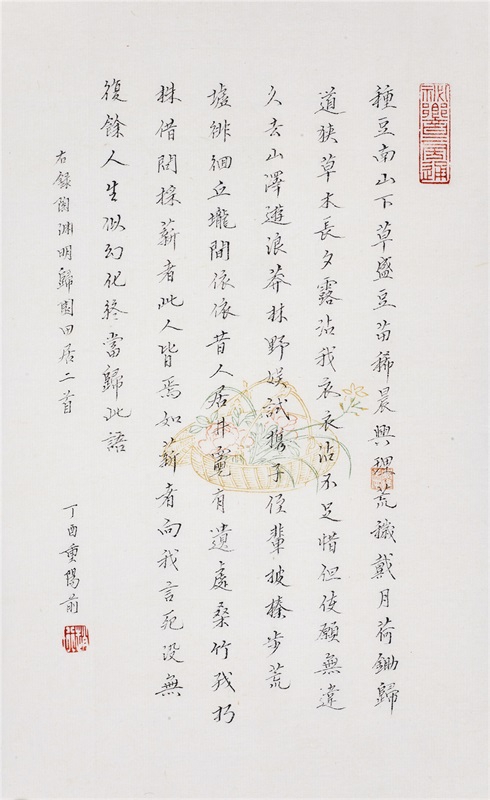 種豆南山下草盛豆苗稀晨興理荒穢戴月荷鋤歸
道狹草木長夕露沾我衣衣沾不足惜但使願無違
久去山澤遊浪莽林野娛試携子侄輩披榛步荒
墟徘徊丘壠間依依昔人居井竈有遺處桑竹殘朽
株借問採薪者此人皆焉如薪者向我言死沒無
復餘人生似幻化終當歸此語
右錄陶淵明歸園田居二首
丁酉重陽前